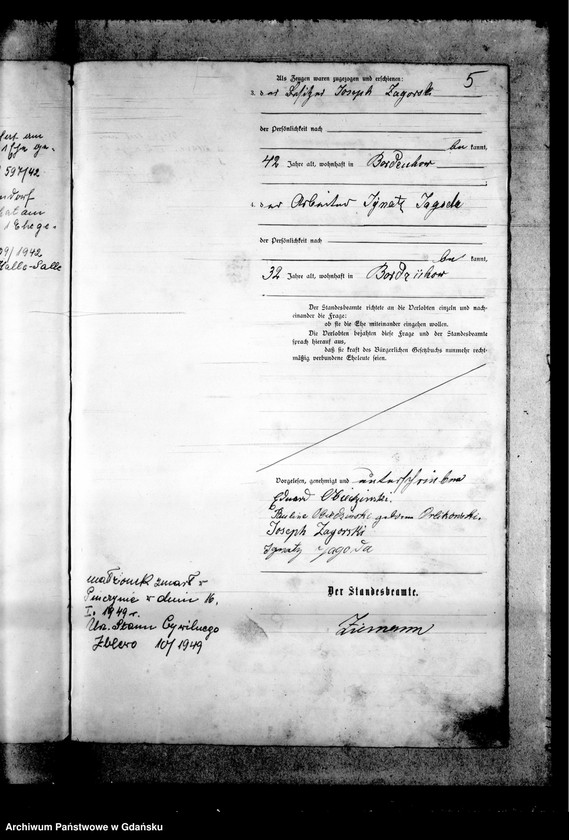 5
Als Zeugen waren zugezogen und erschienen:
3. der Besitzer Joseph Zagorski
der Persönlichkeit nach
be kannt,
42 Jahre alt, wohnhaft in Bordzichow
;
4. der Arbeiter Ignatz Jagoda
der Persönlichkeit nach
be kannt,
32 Jahre alt, wohnhaft in Bordzichow
Der Standesbeamte richtete an die Verlobten einzeln und nach-
einander die Frage:
ob sie die Ehe miteinander eingehen wollen.
Die Verlobten bejahten diese Frage und der Standesbeamte
sprach hierauf aus,
daß sie kraft des Bürgerlichen Gesetzbuchs nunmehr recht-
mäßig verbundene Eheleute seien.
Vorgelesen, genehmigt und unterschrieben
Eduard
Pauline geborene
Joseph Zagorski
Ignatz Jagoda
Der Standesbeamte.
Ziemann
małżonek zmarł w
w dniu 16.
I. 1949 r.
Urz. Stanu Cywilnego
Zblewo 10/1949
am
1 Ehe ge-
597/42
am
1 Ehege-
09/1942
Halle-Saale
Archiwum Państwowe w Gdańsku